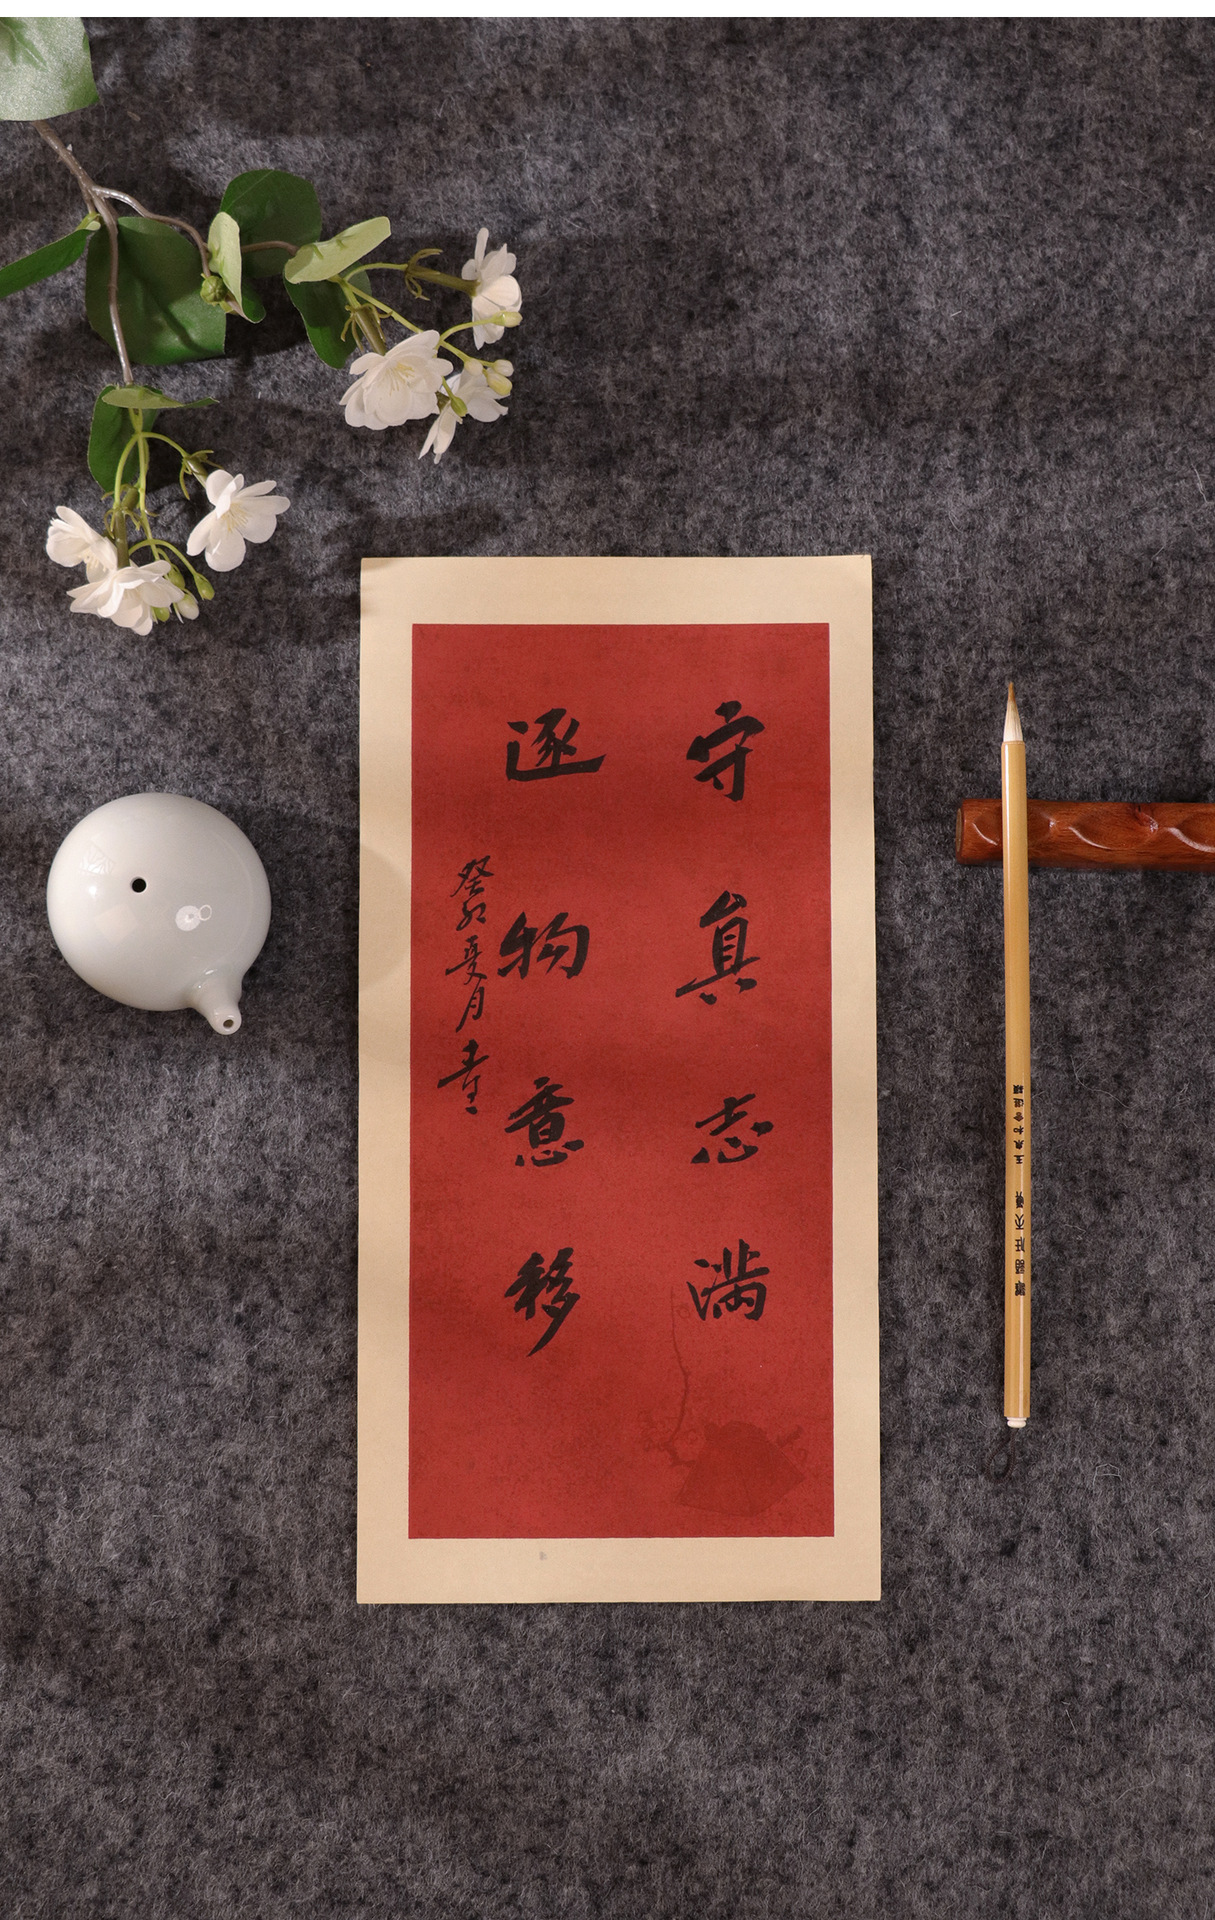 守真志满
逐物意移
癸卯夏月